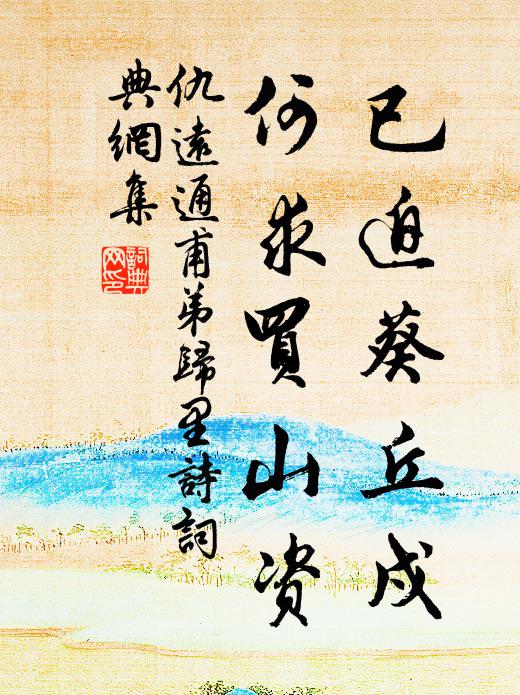 已迫葵丘戍
何求買山资
仇遠通甫弟歸里詩詞
典網集
詞典
网印